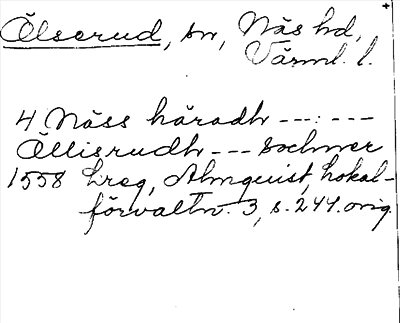 Ölserud, sn, Näs hd,
Värml. l.
4 Näss häradh ---:---
Öllisrudh --- Sochner
1558 Lreg, Almquist, Lokal-
förvaltn. 3, s. 244. orig.